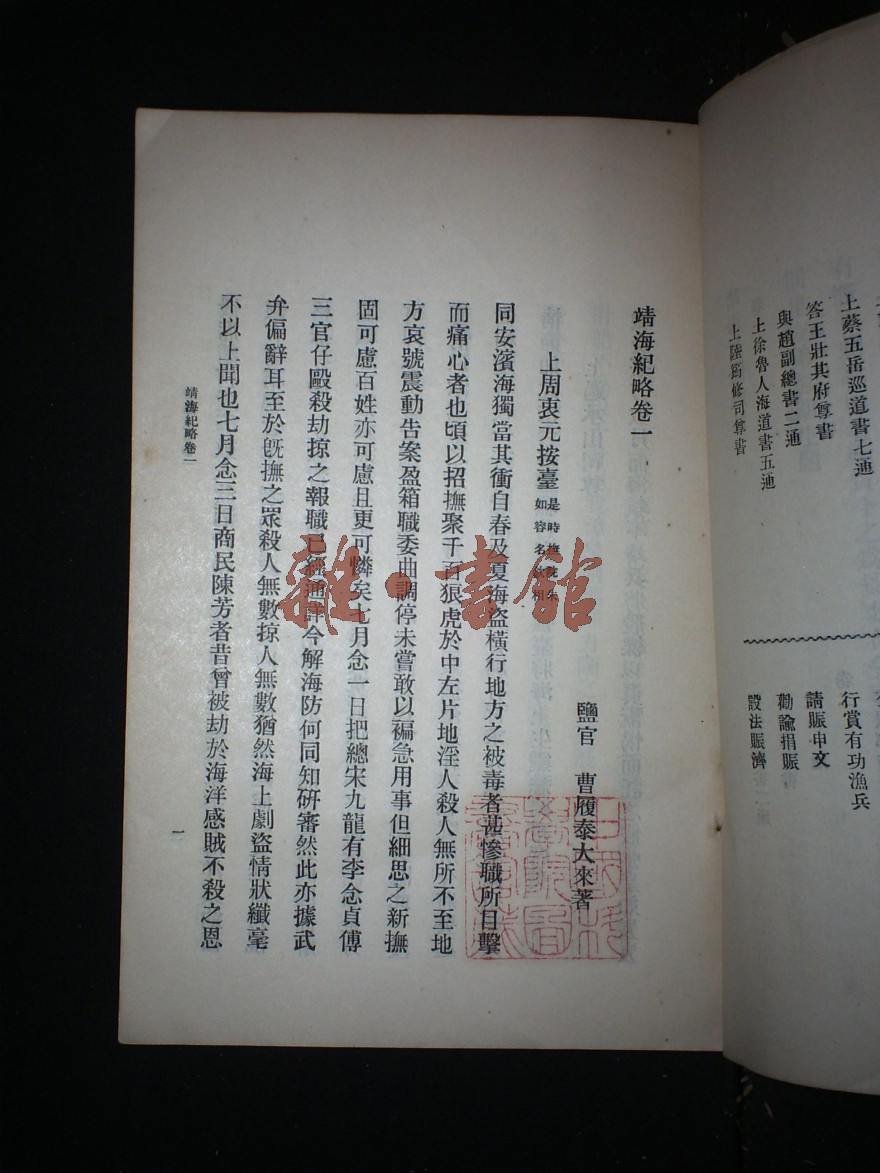 上蔡五岳巡道書七通
答王壯其府尊書
與趙副總書二通
上徐魯人海道書五通
上陸筠修司尊書
行賞有功漁兵
請賑申文
勸諭捐賑
設法賑濟
靖海紀略卷一
鹽官　曹履泰大來著
上周衷元按臺
是時撫院朱
如容名欽相
同安濱海獨當其衝自春及夏海盜橫行地方之被毒者甚慘職所目擊
而痛心者也頃以招撫聚千百狼虎於中左片地淫人殺人無所不至地
方哀號震動告案盈箱職委曲調停未嘗敢以褊急用事但細思之新撫
固可慮百姓亦可慮且更可憐矣七月念一日把總宋九龍有李念貞傅
三官仔毆殺劫掠之報職已經通詳今解海防何同知研審然此亦據武
弁偏辭耳至於旣撫之眾殺人無數掠人無數猶然海上劇盜情狀纖毫
不以上聞也七月念三日商民陳芳者昔曾被劫於海洋感賊不殺之恩
靖海紀略卷一
一
雜·書館